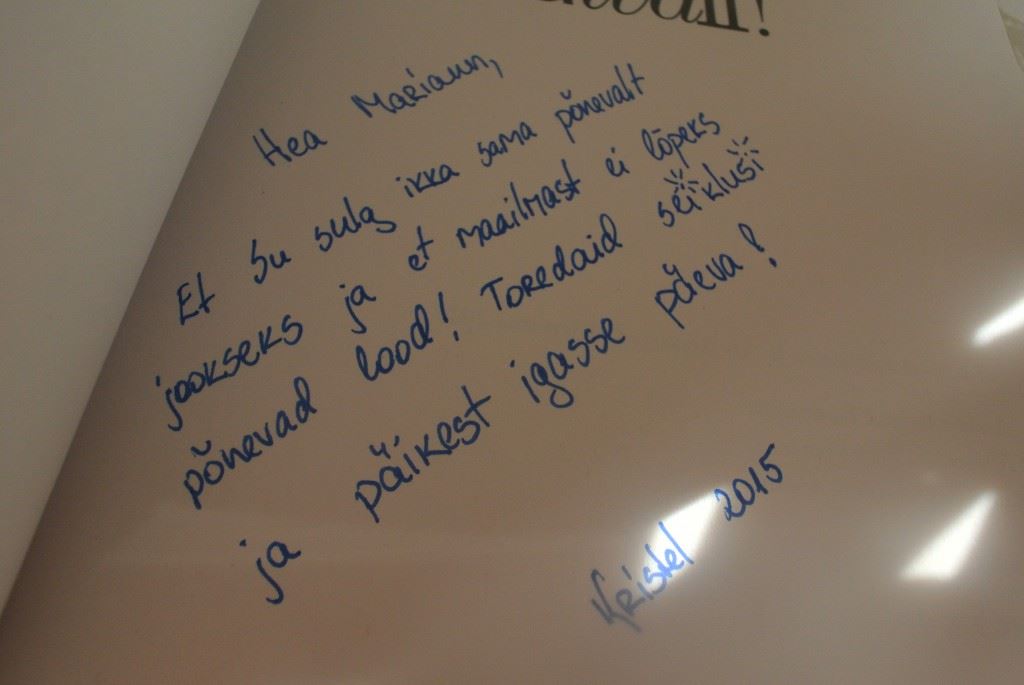 Hea Mariann,
Et Su sulg ikka sama põnevalt
jookseks ja et maailmast ei lõpeks
põnevad lood! Toredaid seiklusi
ja päikest igasse päeva!
Kristel 2015